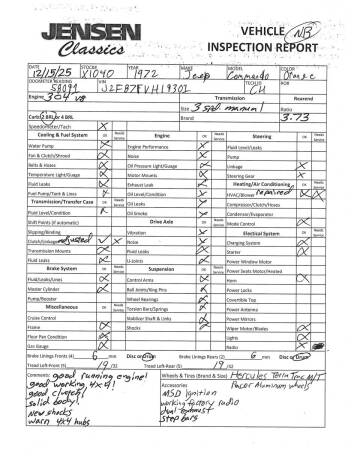 JENSEN
Classics
VEHICLE NB
INSPECTION REPORT
DATE STOCK# YEAR MAKE MODEL COLOR
12/15/25 X1040 1972 Jeep Commando Orange
ODOMETER READING VIN TECH ID RO#
58099 J2F87FVH19301 CH
Engine 304 V8 Transmission Rearend
Size 3 spd. manual Ratio
Carb: 2 BRL or 4 BRL Brand 3.73
Speedometer/Tach X
Cooling & Fuel System OK Needs Service Engine OK Needs Service Steering OK Needs Service
Water Pump X Engine Performance X Fluid Leaks
Fan & Clutch/Shroud X Noise X Pump
Belts & Hoses X Oil Pressure Light/Guage X Linkage X
Temperature Light/Guage X Motor Mounts X Steering Gear X
Fluid Leaks X Exhaust Leak X Heating/Air Conditioning OK Needs Service
Fuel Pump/Tank & Lines X Fluid Level/Condition X HVAC/Blower repaired X
Transmission/Transfer Case OK Needs Service Oil Leaks X Compressor/Clutch/Hoses
Fluid Level/Condition X Oil Smoke X Condenser/Evaporator
Shift Points (if automatic) Drive Axle OK Needs Service Mode Control X
Slipping/Binding Vibration X Electrical System OK Needs Service
Clutch/Linkage adjusted X Noise X Charging System X
Transmission Mounts X Fluid Leaks X Starter X
Fluid Leaks X U-Joints X Power Window Motor
Brake System OK Needs Service Suspension OK Needs Service Power Seats Motor/Heated
Fluid/Leaks/Lines X Control Arms X Horn X
Master Cylinder X Ball Joints/King Pins X Power Locks
Pump/Booster Wheel Bearings X Covertible Top
Miscellaneous OK Needs Service Torsion Bars/Springs X Power Antenna
Cruise Control Stabilizer Shaft & Links X Power Mirrors
Frame X Shocks X Wiper Motor/Blades X
Floor Pan Condition X Lights X
Gas Gauge X Radio X
Brake Linings Fronts (4) 6 mm Disc or Drum Brake Linings Rears (2) 6 mm Disc or Drum
Tread Left-Front (5) 19 /32 Tread Left-Rear (5) 19 /32
Comments: good running engine!
good working 4x4!
good clutch!
solid body!
New shocks
warn 4x4 hubs
Wheels & Tires (Brand & Size) Hercules Terra Trac M/T
Pacer Aluminum wheels
Accessories
MSD Ignition
working factory radio
dual exhaust
step bars